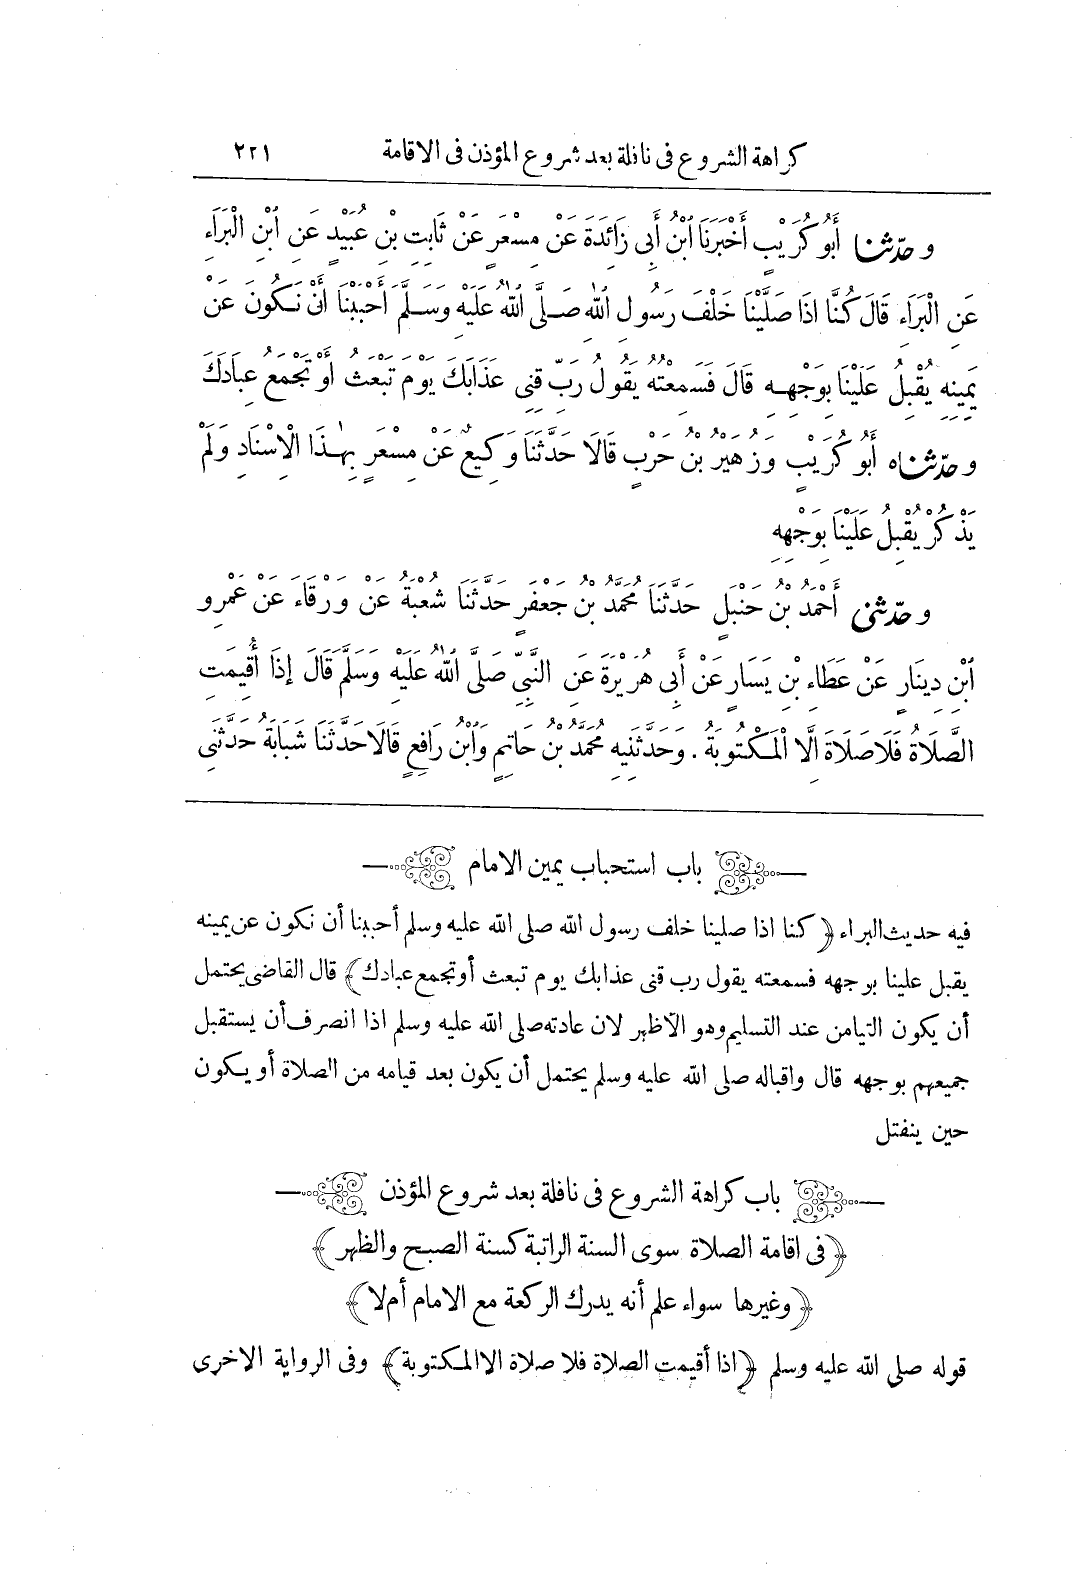 كراهة الشروع فى نافلة بعد شروع المؤذن فى الاقامة ٢٢١
وحدّثنا أَبُو كُرَيْبٍ أَخْبَرَنَا ابْنُ أَبِى زَائِدَةَ عَنْ مِسْعَرٍ عَنْ ثَابِتِ بْنِ عُبَيْدٍ عَنِ ابْنِ الْبَرَاءِ
عَنِ الْبَرَاءِ قَالَ كُنَّا اذَا صَلَّيْنَا خَلْفَ رَسُولِ اللهِ صَلَّى اللهُ عَلَيْهِ وَسَلَّمَ أَحْبَبْنَا أَنْ نَكُونَ عَنْ
يَمِينِهِ يُقْبِلُ عَلَيْنَا بِوَجْهِهِ قَالَ فَسَمِعْتُهُ يَقُولُ رَبِّ قِنِى عَذَابَكَ يَوْمَ تَبْعَثُ أَوْ تَجْمَعُ عِبَادَكَ
وحدّثناه أَبُو كُرَيْبٍ وَزُهَيْرُ بْنُ حَرْبٍ قَالَا حَدَّثَنَا وَكِيعٌ عَنْ مِسْعَرٍ بِهٰذَا الْاِسْنَادِ وَلَمْ
يَذْكُرْ يُقْبِلُ عَلَيْنَا بِوَجْهِهِ
وحدّثنى أَحْمَدُ بْنُ حَنْبَلٍ حَدَّثَنَا مُحَمَّدُ بْنُ جَعْفَرٍ حَدَّثَنَا شُعْبَةُ عَنْ وَرْقَاءَ عَنْ عَمْرِو
ابْنِ دِينَارٍ عَنْ عَطَاءِ بْنِ يَسَارٍ عَنْ أَبِى هُرَيْرَةَ عَنِ النَّبِىِّ صَلَّى اللهُ عَلَيْهِ وَسَلَّمَ قَالَ إِذَا أُقِيمَتِ
الصَّلَاةُ فَلَا صَلَاةَ اِلَّا الْمَكْتُوبَةُ . وَحَدَّثَنِيهِ مُحَمَّدُ بْنُ حَاتِمٍ وَابْنُ رَافِعٍ قَالَا حَدَّثَنَا شَبَابَةُ حَدَّثَنِى
باب استحباب يمين الامام
فيه حديث البراء ﴿كنا اذا صلينا خلف رسول الله صلى الله عليه وسلم أحببنا أن نكون عن يمينه
يقبل علينا بوجهه فسمعته يقول رب قنى عذابك يوم تبعث أو تجمع عبادك﴾ قال القاضى يحتمل
أن يكون التيامن عند التسليم وهو الأظهر لان عادته صلى الله عليه وسلم اذا انصرف أن يستقبل
جميعهم بوجهه قال واقباله صلى الله عليه وسلم يحتمل أن يكون بعد قيامه من الصلاة أو يكون
حين ينفتل
باب كراهة الشروع فى نافلة بعد شروع المؤذن
﴿فى اقامة الصلاة سوى السنة الراتبة كسنة الصبح والظهر﴾
﴿وغيرها سواء علم أنه يدرك الركعة مع الامام أم لا﴾
قوله صلى الله عليه وسلم ﴿اذا أقيمت الصلاة فلا صلاة الا المكتوبة﴾ وفى الرواية الاخرى